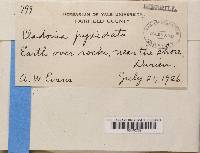 299
HERBARIUM OF YALE UNIVERSITY
FAIRFIELD COUNTY
Cladonia pyxidata
Earth over rocks, near the shore
Darien.
A. W. Evans
July 21, 1926